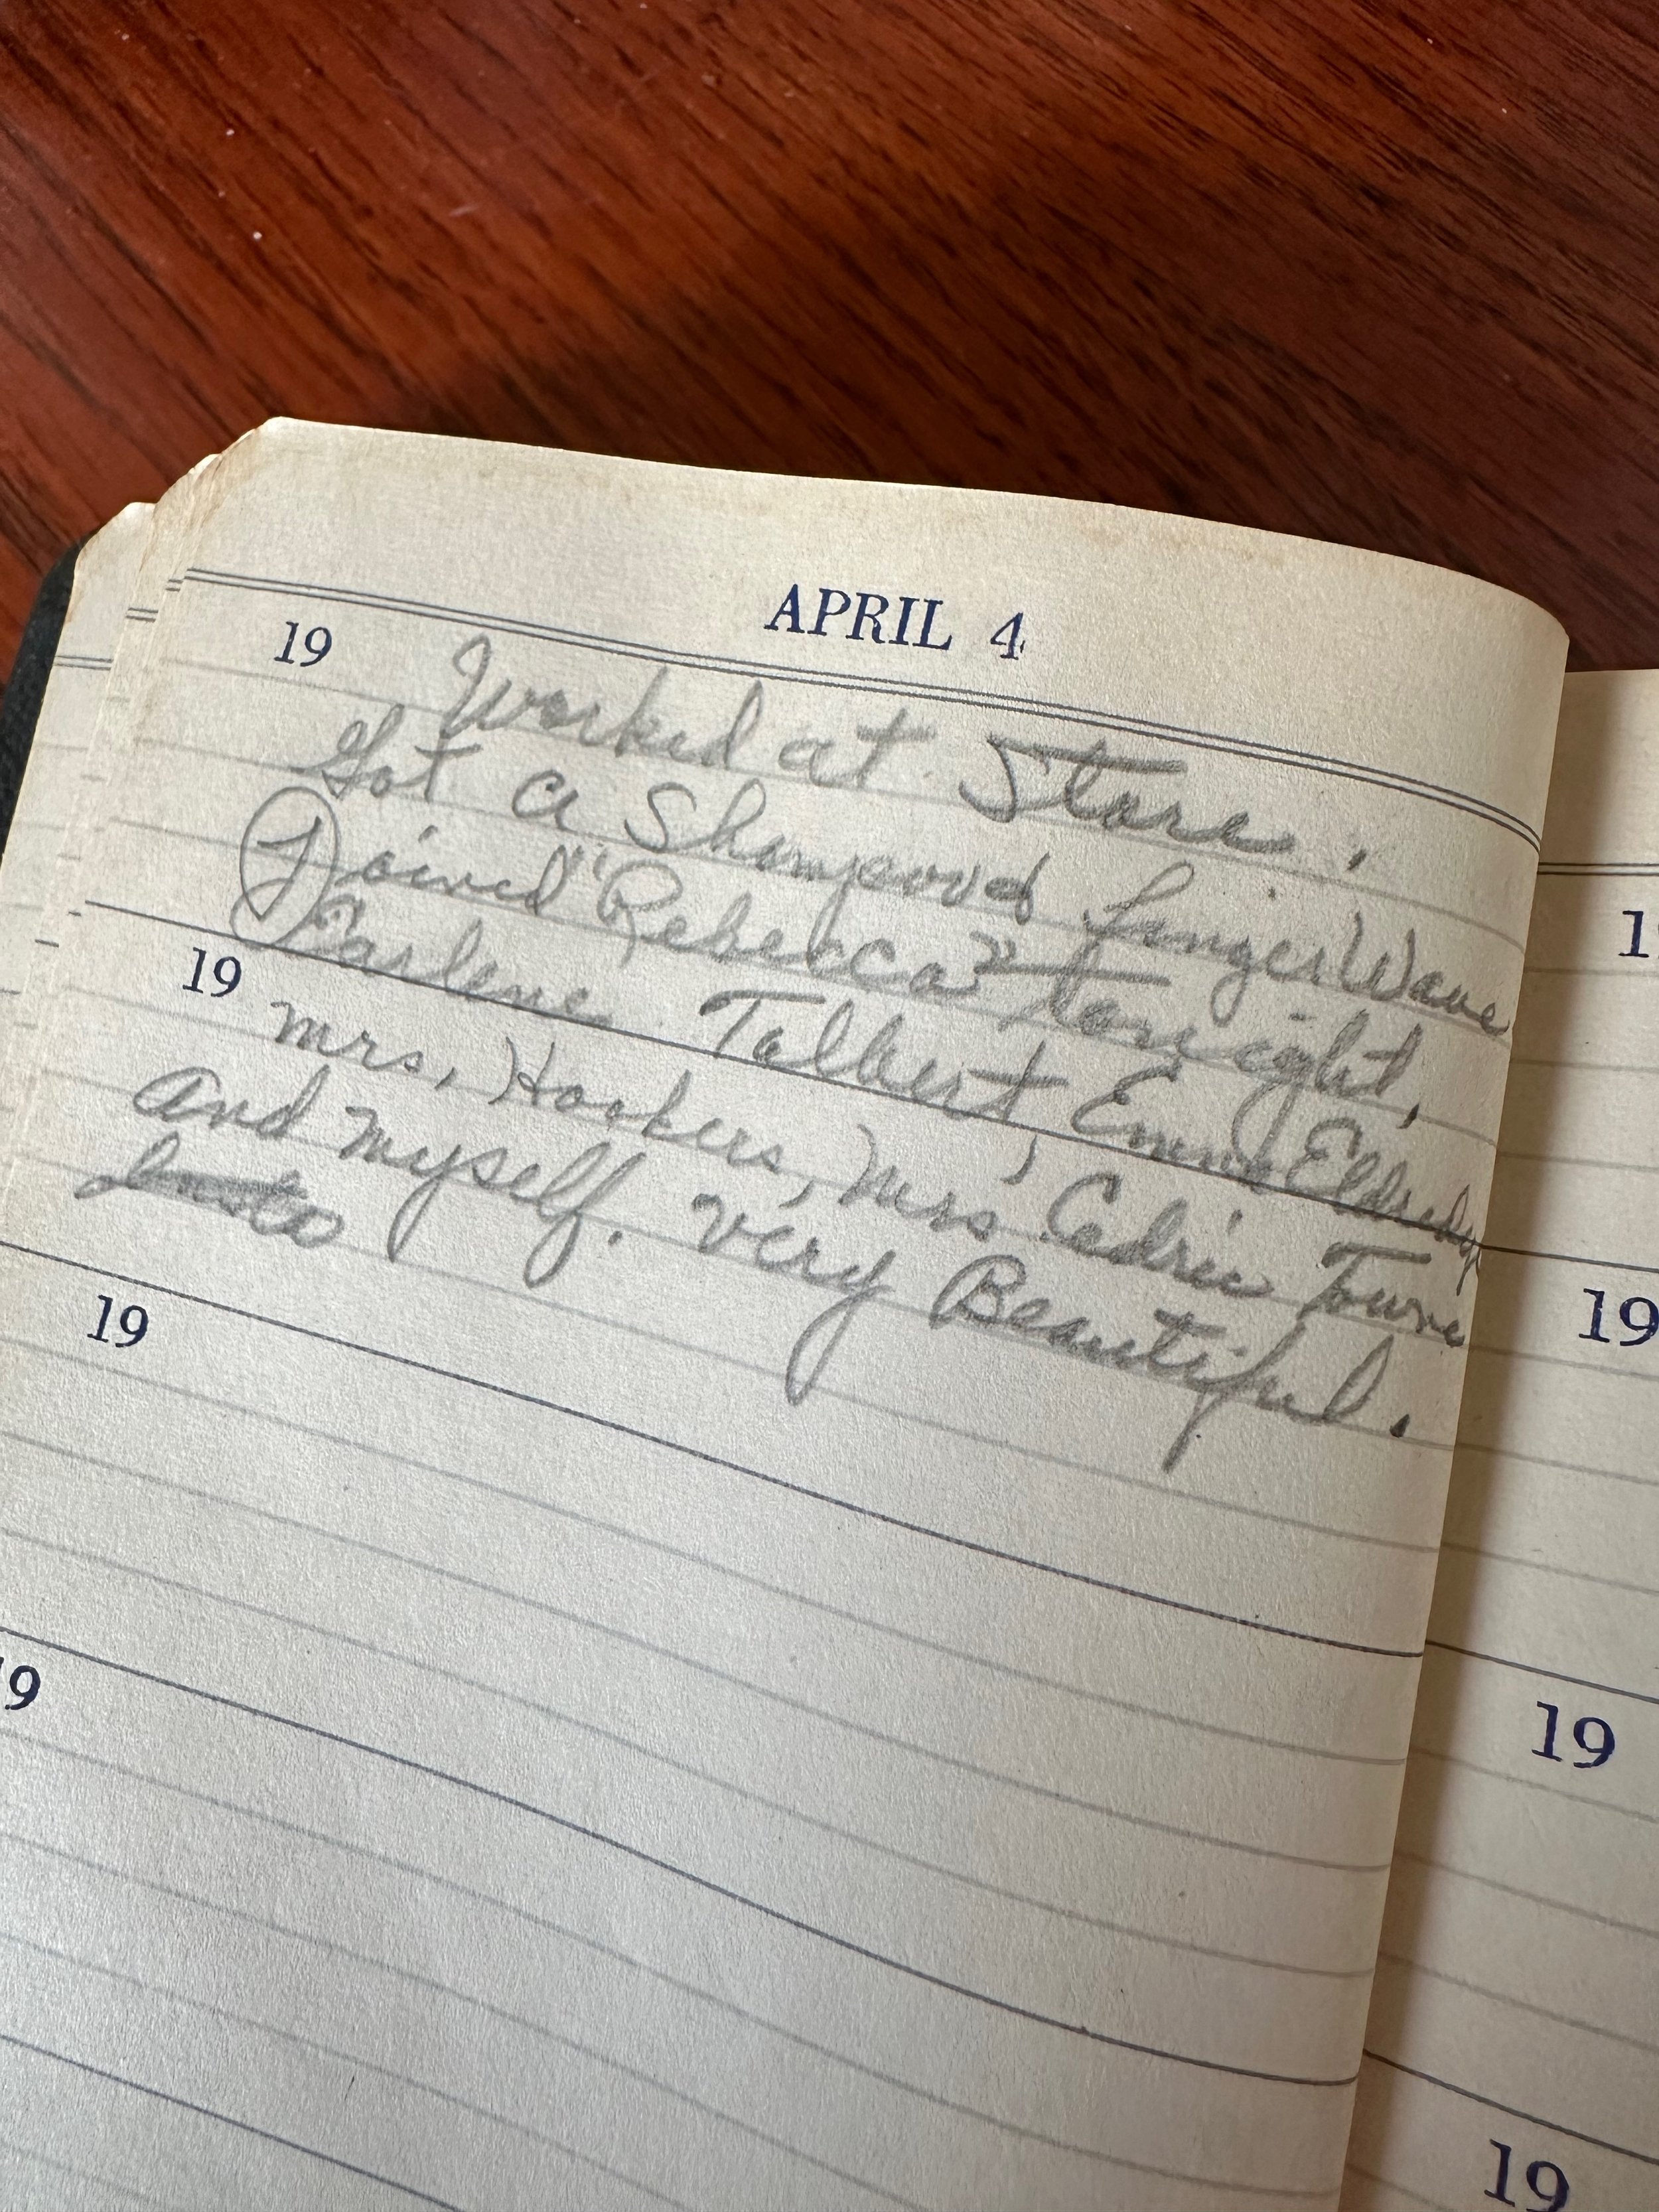 APRIL 4
19 Worked at Store.
Got a Shampoo & Finger Wave
Joined "Rebecca" tonight.
Earlene Talbert, Emma Eldredg
19 Mrs. Hookers, Mrs Cedric Towne
and myself. Very Beautiful.
19
19
19
19
19